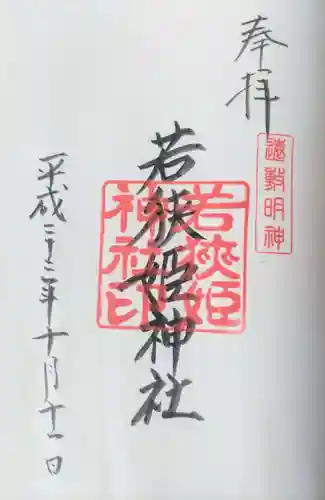 奉拝
遠敷明神
若狭姫神社
若狭姫
神社印
平成二十二年十月十一日